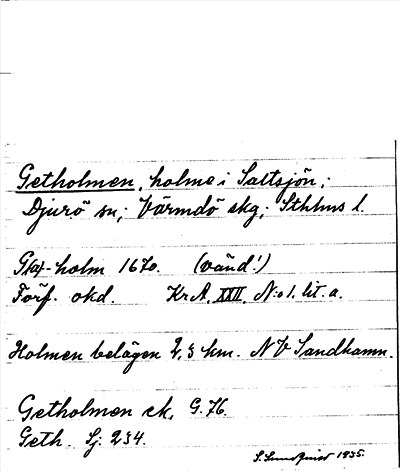 Getholmen, holme i Saltsjön;
Djurö sn; Värmdö skg; Sthlms l.
holm 1670. (vänd!)
Förf. okd. Kr A. XXII. N:o 1. lit. a.
Holmen belägen 2,3 km. NV Sandhamn.
Getholmen ek. G. 76.
Geth. Sj. 234.
S. Sundquist 1935.